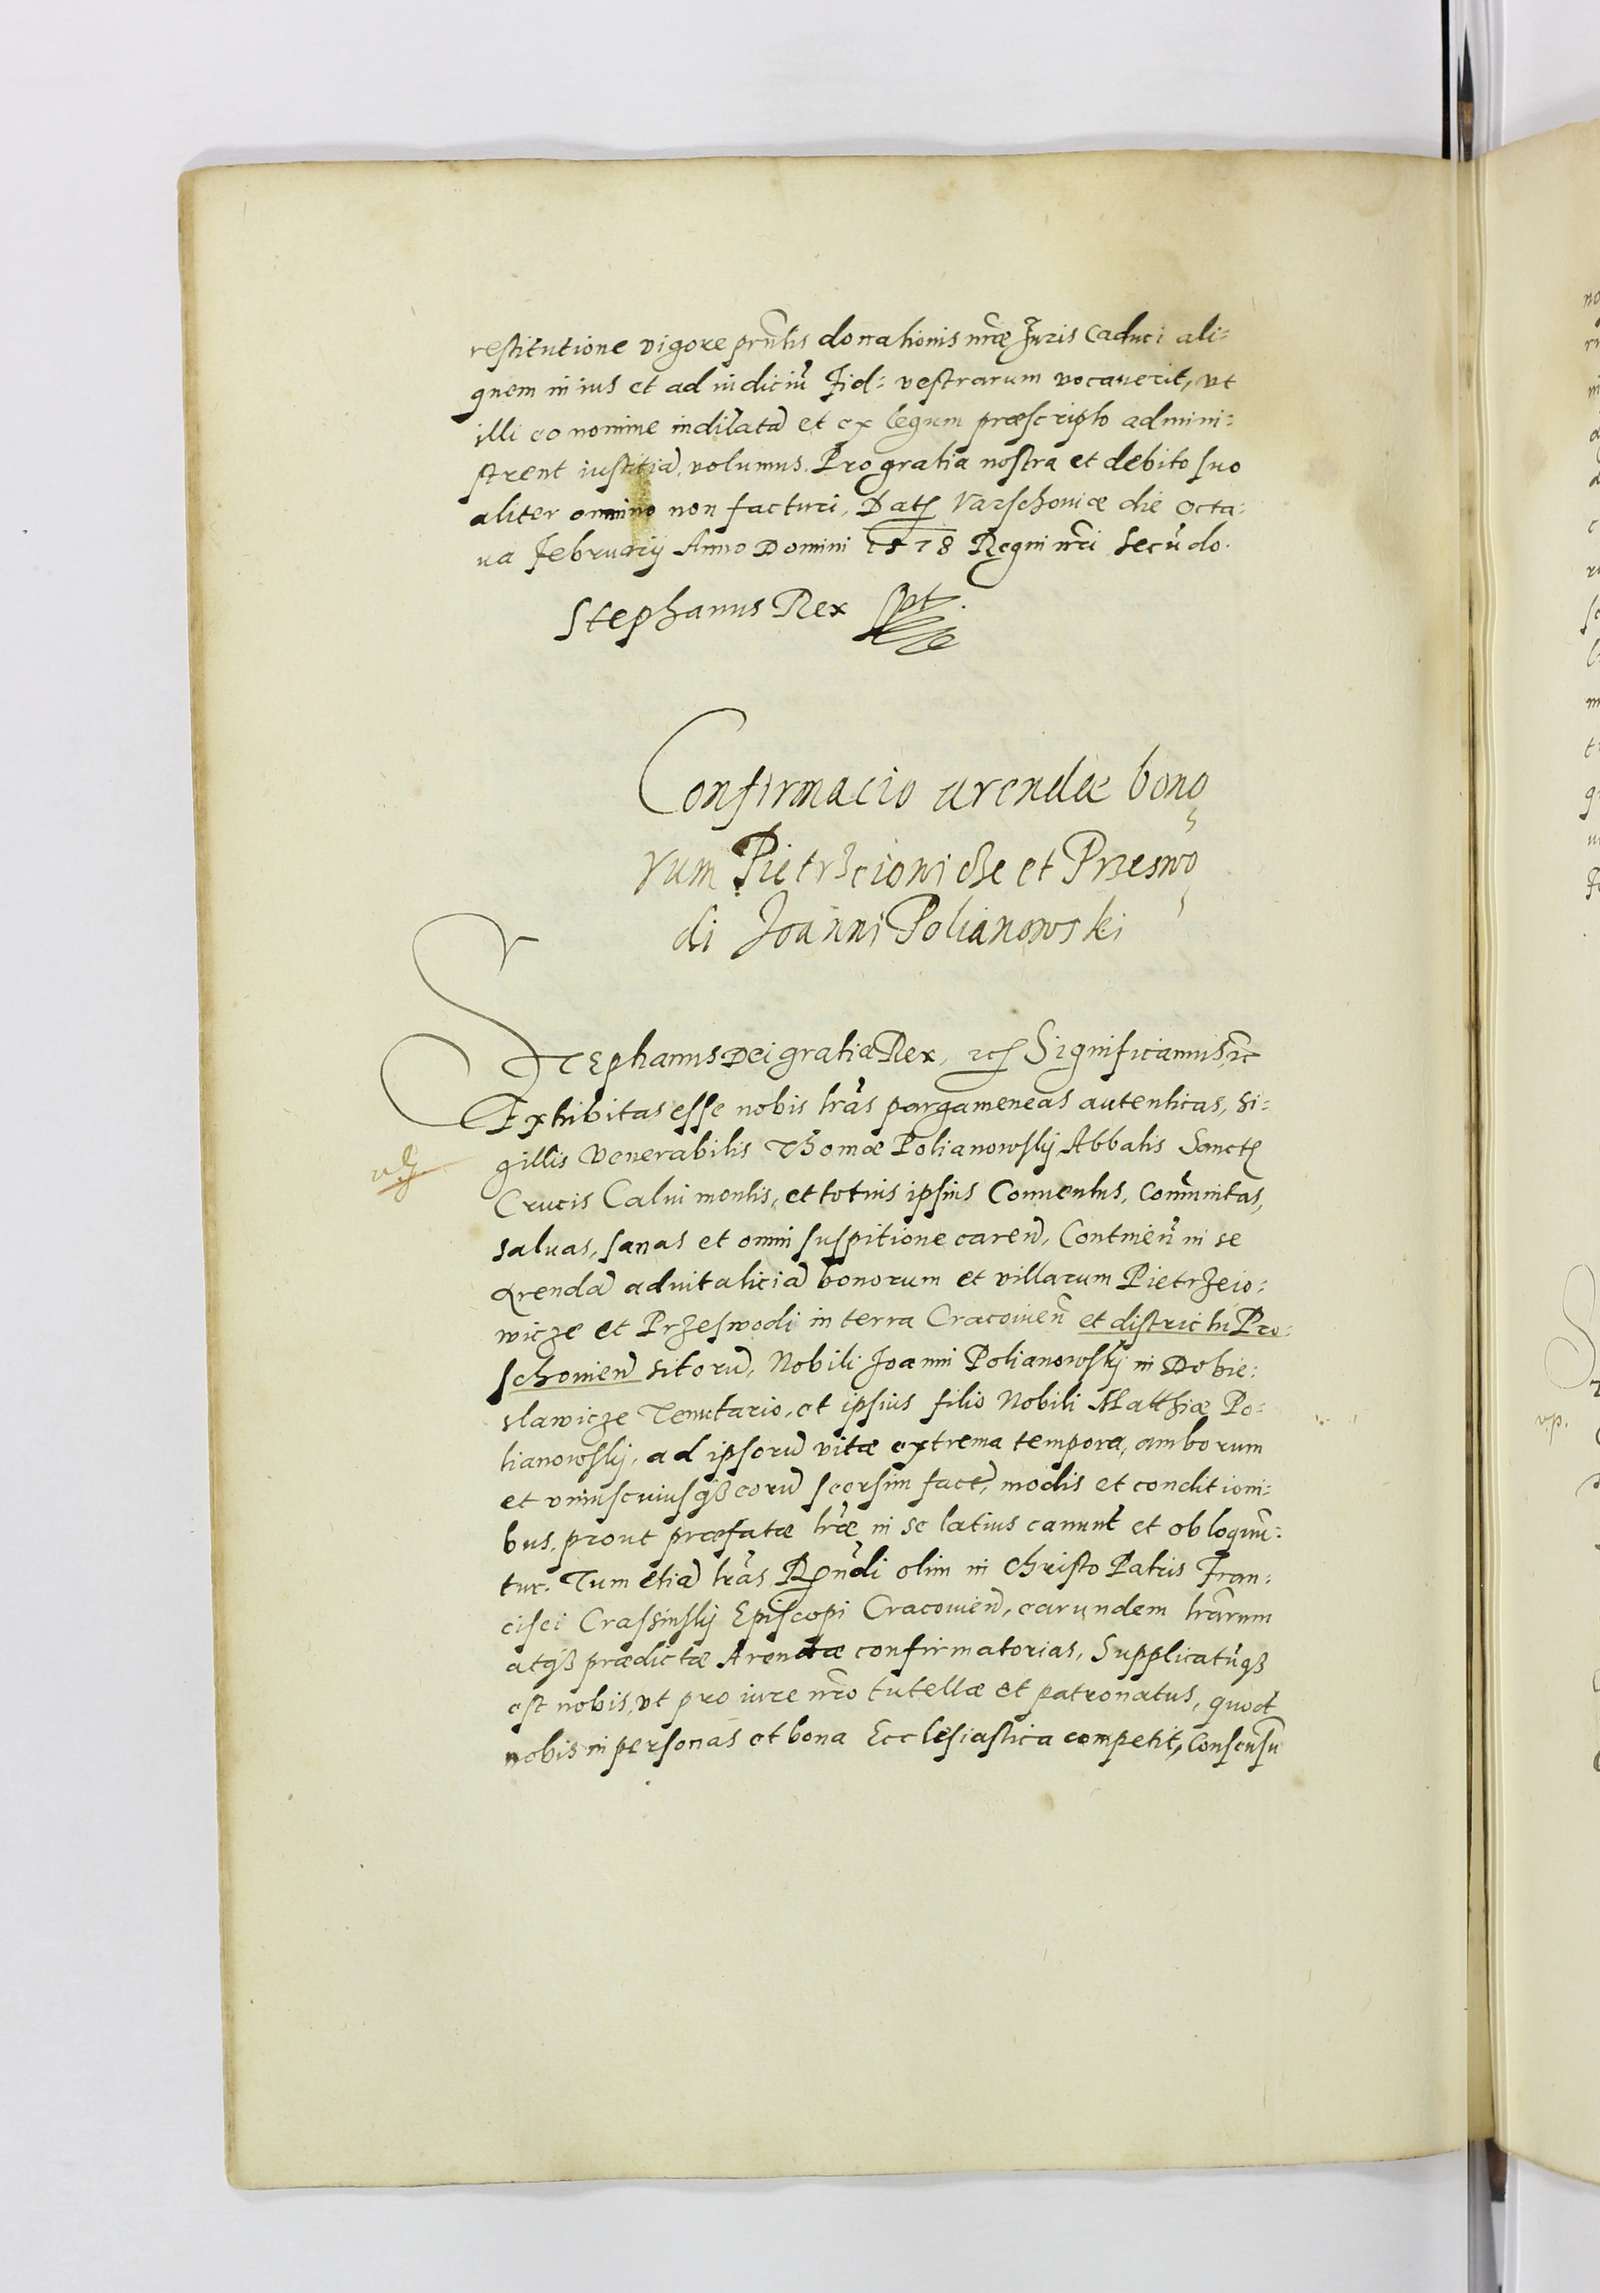 restitutione vigore prñtis donationis nr̃æ Juris Caduci ali=
quem in ius et ad iudiciũ Fid: vestrarum vocauerit, vt
illi eo nomine indilatã et ex legum præscripto admini=
strent iustitiã, volumus. Pro gratia nostra et debito suo
aliter omnino non facturi. Datʒ Varschouiæ die Octa=
ua Februarij Anno Domini 1578 Regni nr̃i Secũdo.
Stephanus Rex sst.
Confirmacio arendæ bono
rum Pietrzeiowicze et Przeswo
di Joanni Polianowski
Stephanus Dei gratia Rex, etc Significamus, etc
Exhibitas esse nobis lr̃as pargameneas autenticas, si=
gillis Venerabilis Thomæ Polianowsky Abbatis Sanctę
Crucis Calui montis, et totius ipsius Conuentus, Com̃unitas,
saluas, sanas et omni suspitione careñ, Continẽñ in se
Arendã aduitaliciã bonorum et villarum Pietrzeio=
wicze et Przeswodi in terra Cracouieñ et districtu Pro=
schouieñ sitorũ, Nobili Joanni Polianowsky in Dobie=
slawicze Tenutario, et ipsius filio Nobili Matthiæ Po=
lianowsky, ad ipsorũ vitæ extrema tempora, amborum
et vniuscuiusqʒ eorũ seorsim fact̃, modis et conditioni=
bus, prout præfatæ lr̃æ in se latius canunt et obloquũ=
tur. Tum etiã lr̃as Rũndi olim in Christo Patris Fran=
cisci Crassinsky Episcopi Cracouieñ, earundem lr̃arum
atqʒ prædictæ Arendæ confirmatorias, Supplicatũqʒ
est nobis, vt pro iure nr̃o tutellæ et patronatus, quod
nobis in personas et bona Ecclesiastica competit, Consensũ